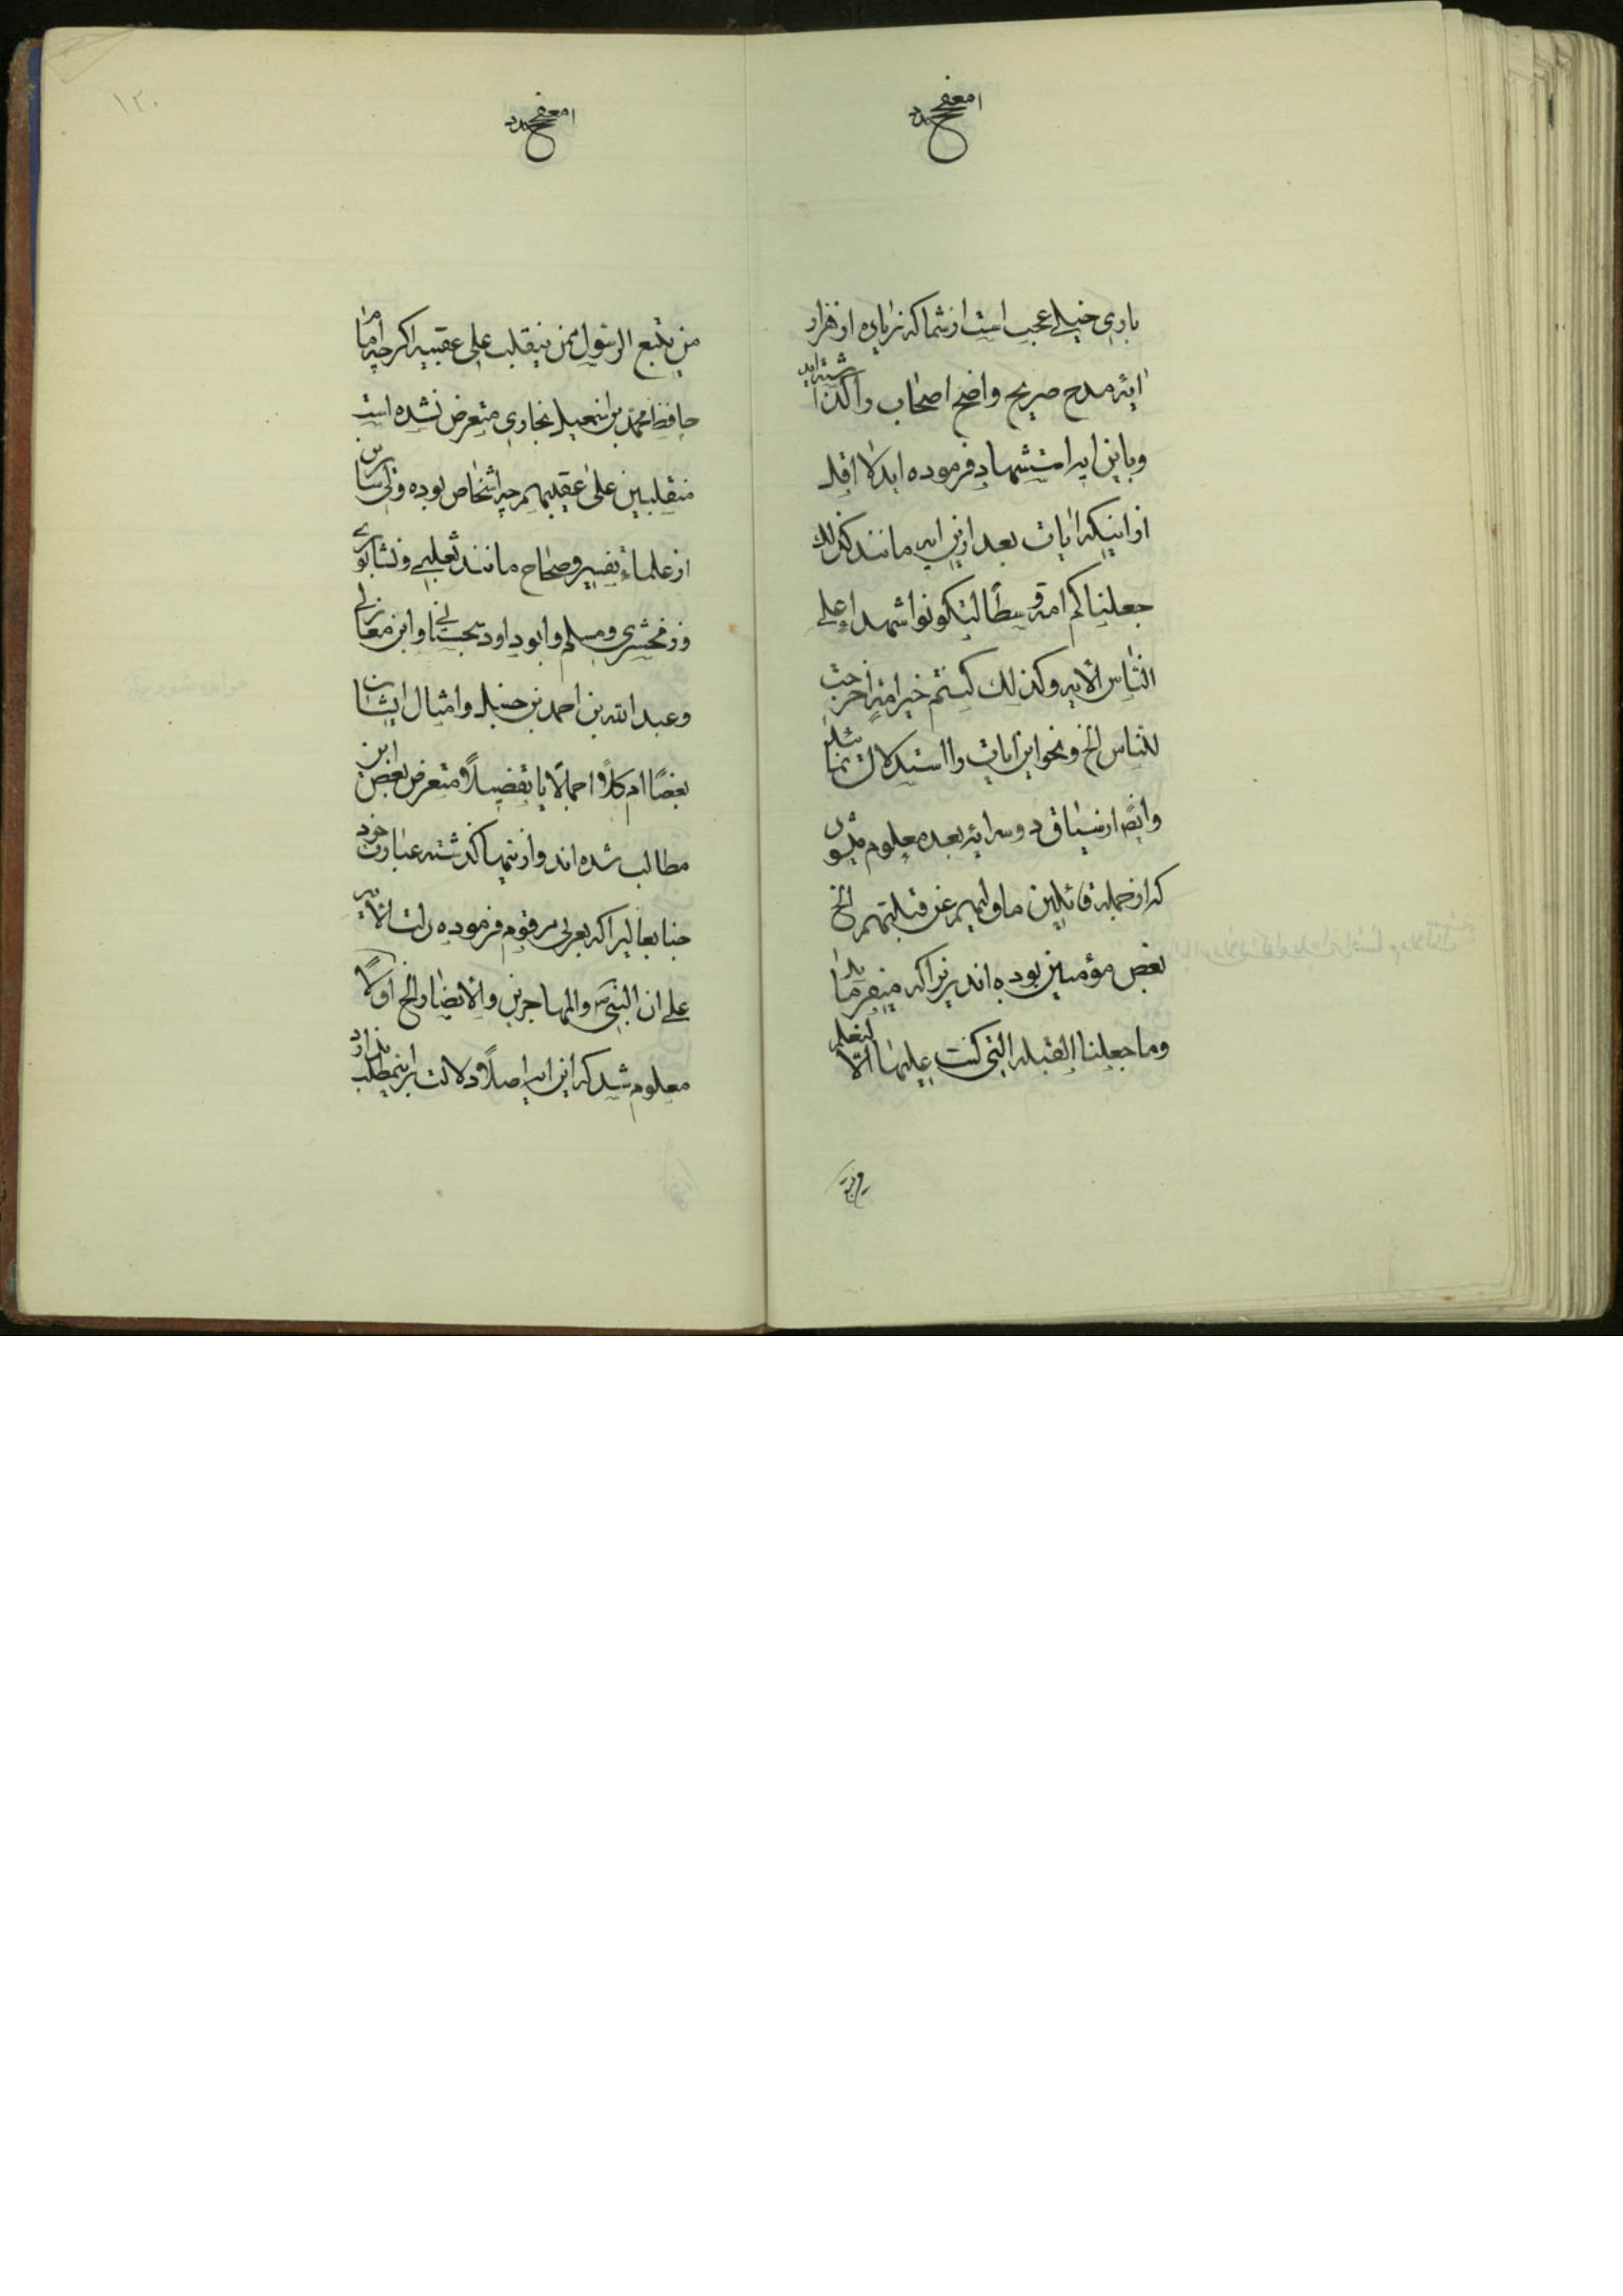 باری خیلی عجب است از شما که زیاده از هزار
ایه مدح صریح واضح اصحاب را گذاشته‌اید
و باین ایه استشهاد فرموده اید لا اقل
از اینکه ایات بعد ازین ایه مانند کذلک
جعلناکم امة وسطاً لتکونوا شهداء علی
الناس الایه و کذلک کنتم خیر امة اخرجت
للناس الخ و نحو این آیات را استدلال
وایضاً از سیاق دو سه ایه بعد معلوم میشود
که از جمله قائلین ما ولیهم عن قبلتهم الخ
بعض مؤمنین بوده اند زیرا که میفرماید
وما جعلنا القبله التی کنت علیها الا لنعلم
۱۲۰
من یتبع الرسول ممن ینقلب علی عقبیه اکرچه اماما
حافظ محمد بن اسمعیل بخاری متعرض نشده است
منقلبین علی عقبیهم چه اشخاص بوده ولی سائرین
از علماء تفسیر و صحاح مانند ثعلبی و نشابوری
و زمخشری و مسلم و ابو داود سجستانی و ابن مغازلی
و عبد الله بن احمد بن حنبل و امثال ایشان
بعضاً ام کلاً و اجمالاً یا تفصیلاً متعرض بعض این
مطالب شده اند و از اینها گذشته عبارت خود
جنابعالی را که بعربی مرقوم فرموده دلت الایه
علی ان النبی والمهاجرین والانصار الخ اولاً
معلوم شد که این ایه اصلاً دلالت بر اینمطلب ندارد